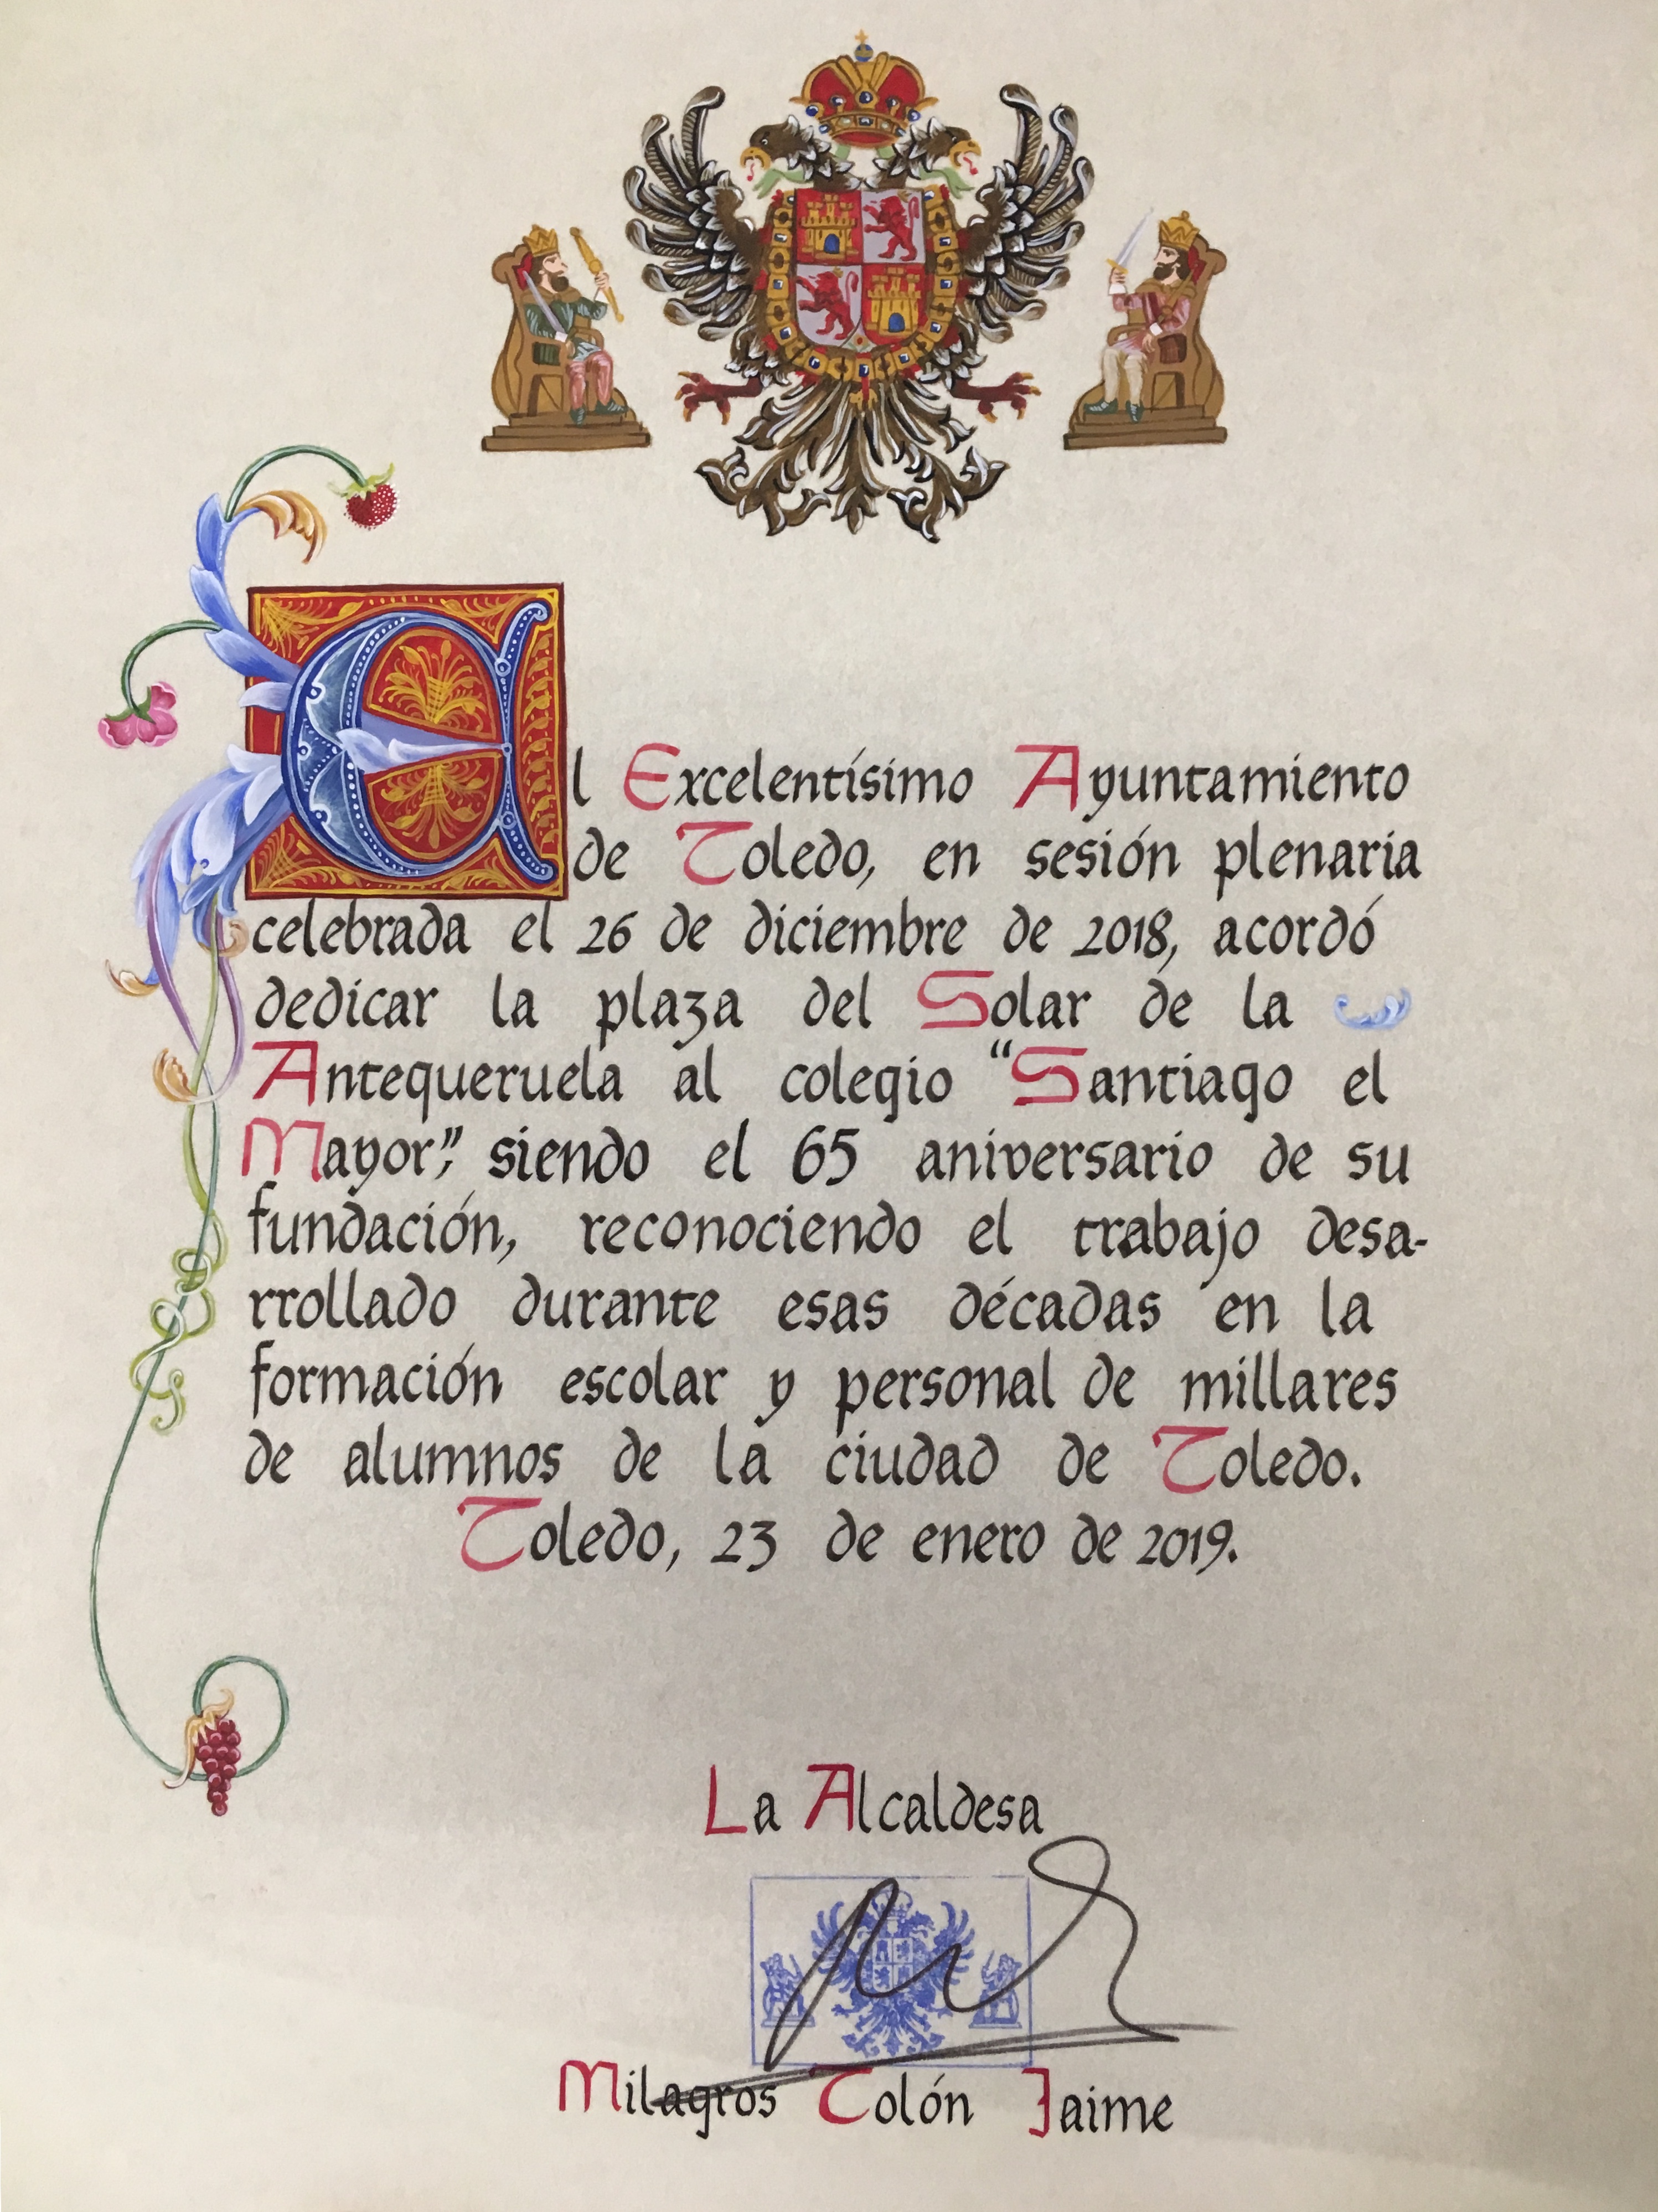 El Excelentísimo Ayuntamiento
de Toledo, en sesión plenaria
celebrada el 26 de diciembre de 2018, acordó
dedicar la plaza del Solar de la
Antequeruela al colegio “Santiago el
Mayor”, siendo el 65 aniversario de su
fundación, reconociendo el trabajo desa-
rrollado durante esas décadas en la
formación escolar y personal de millares
de alumnos de la ciudad de Toledo.
Toledo, 23 de enero de 2019.
La Alcaldesa
Milagros Tolón Jaime